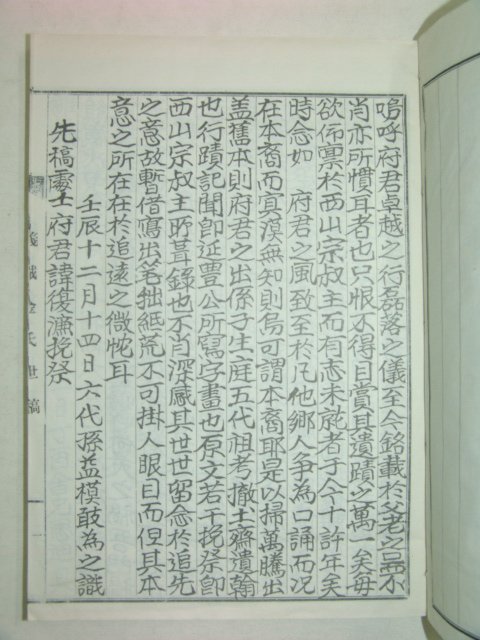 嗚呼府君卓越之行磊落之儀至今銘載於父老之口不
肖亦所慣耳者也只恨不得目賞其遺蹟之萬一矣每
欲佈禀於西山宗叔主而有志未就者于今十許年矣
時念如 府君之風致至於凡他鄉人爭為口誦而况
在本裔而冥漠無知則烏可謂本裔耶是以掃萬騰出
盖舊本則府君之出係子生庭五代祖考撤土齋遺翰
也行蹟記聞卽延豊公所寫字畫也原文若干挽祭卽
西山宗叔主所葺錄也不肖深感其世世留念於追先
之意故暫借謄出筆拙紙荒不可掛人眼目而但其本
意之所在在於追遠之微忱耳
壬辰十二月十四日六代孫益模敢為之識
先稿處士府君諱復漁挽祭
氏世稿
一